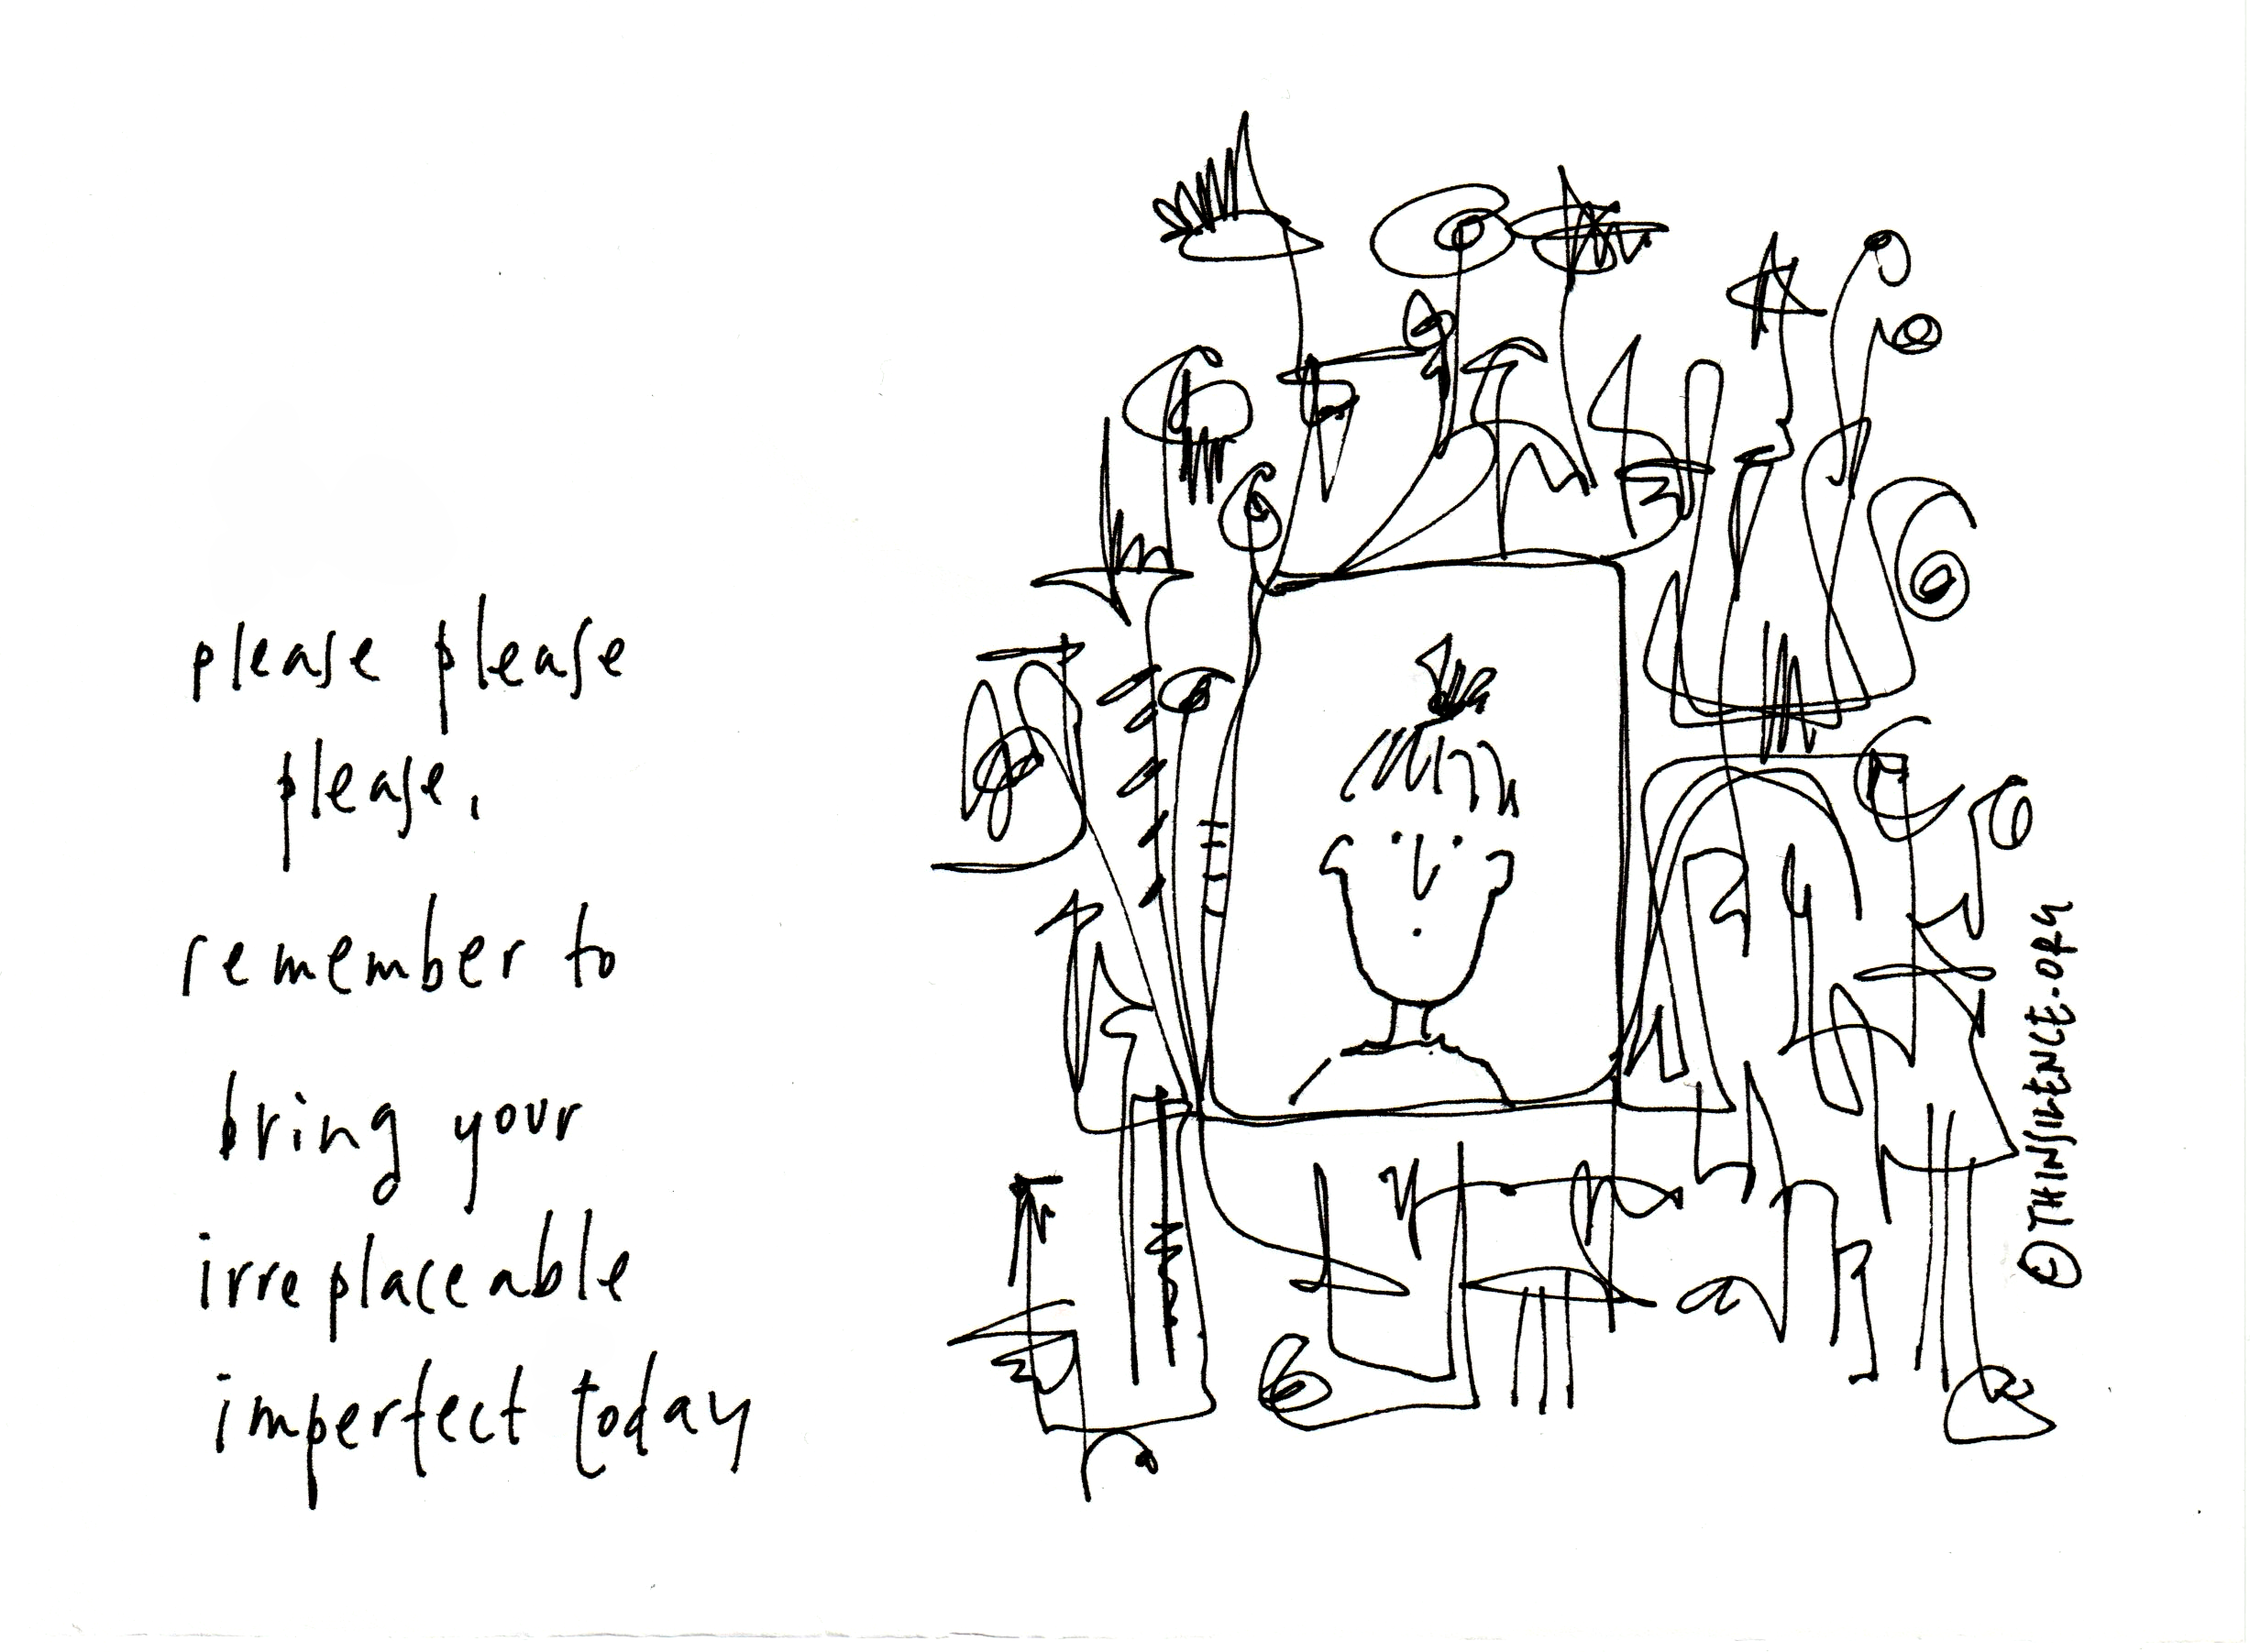 please please
please,
remember to
bring your
irreplaceable
imperfect today
© THINSILENCE.ORG